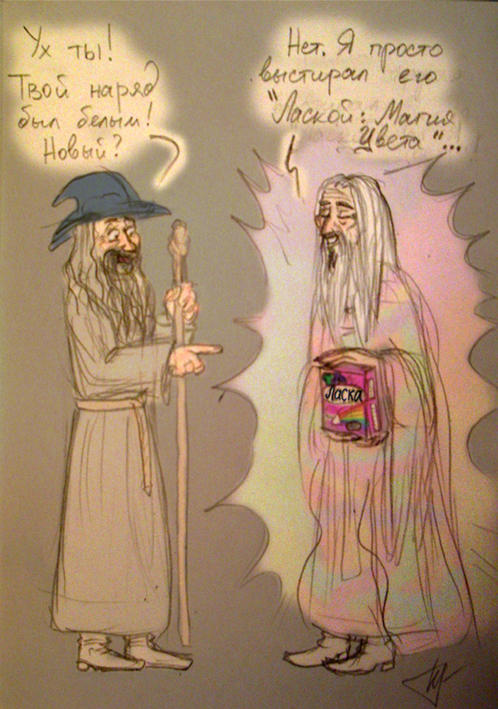 Ух ты!
Твой наряд
был белым!
Новый?
Нет. Я просто
выстирал его
"Лаской: Магия
Цвета"...
Ласка